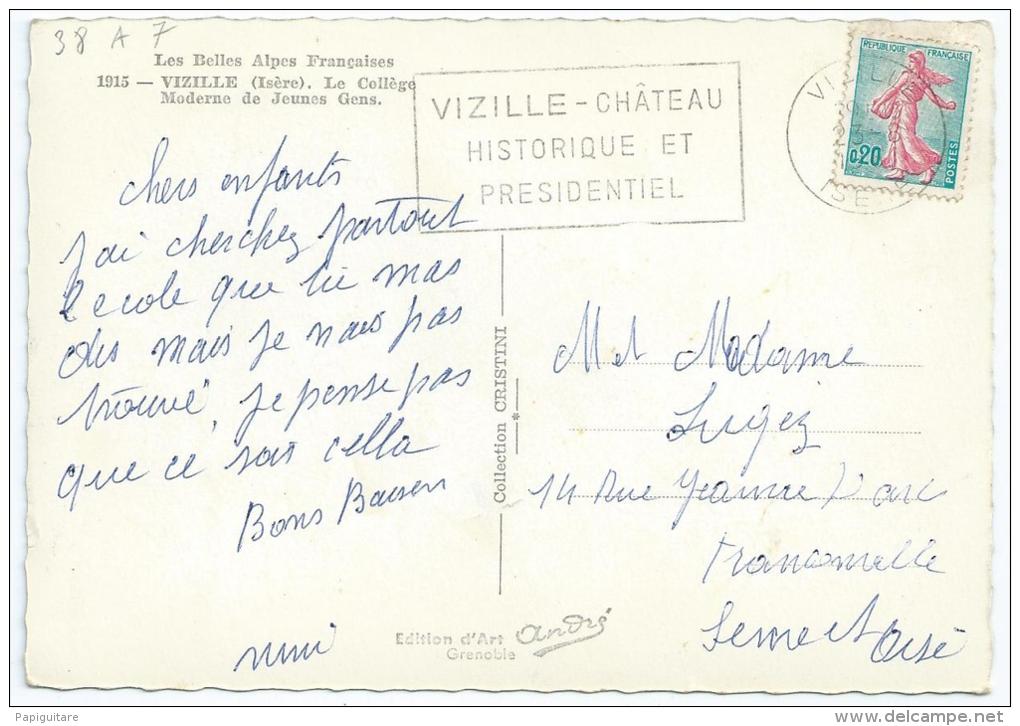 38 A 7
Les Belles Alpes Françaises
1915 — VIZILLE (Isère). Le Collège
Moderne de Jeunes Gens.
VIZILLE - CHÂTEAU
HISTORIQUE ET
PRESIDENTIEL
REPUBLIQUE FRANÇAISE
0,20
POSTES
chers enfants
j'ai cherchez partout
l'ecole que tu mas
dis mais je nais pas
trouvé, je pense pas
que ce sois cella
Bons Baisers
mimi
Collection CRISTINI
M et Madame
Lugez
14 Rue Jeanne D'arc
Franconville
Seine et Oise
Edition d'Art André
Grenoble
Papiguitare
http://www.delcampe.net